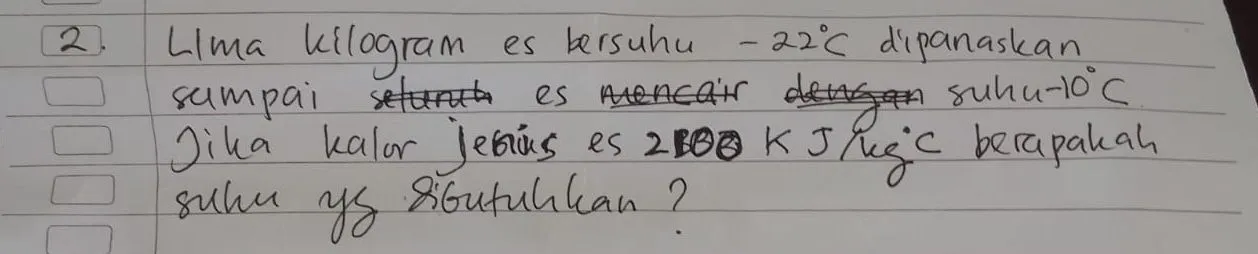 2. Lima kilogram es bersuhu -22°C dipanaskan
sampai seluruh es mencair dengan suhu-10°C
Jika kalor jenis es 2100 KJ/kg°C berapakah
suhu yg dibutuhkan?